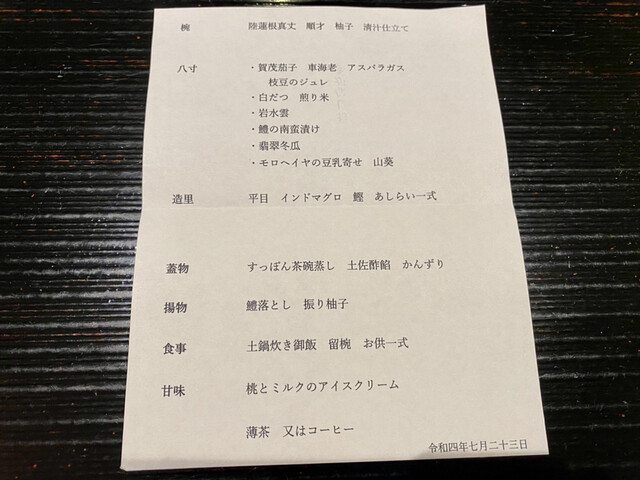 椀 陸蓮根真丈 順才 柚子 清汁仕立て
八寸 ・賀茂茄子 車海老 アスパラガス
枝豆のジュレ
・白だつ 煎り米
・岩水雲
・鱧の南蛮漬け
・翡翠冬瓜
・モロヘイヤの豆乳寄せ 山葵
造里 平目 インドマグロ 鰹 あしらい一式
蓋物 すっぽん茶碗蒸し 土佐酢餡 かんずり
揚物 鱧落とし 振り柚子
食事 土鍋炊き御飯 留椀 お供一式
甘味 桃とミルクのアイスクリーム
薄茶 又はコーヒー
令和四年七月二十三日